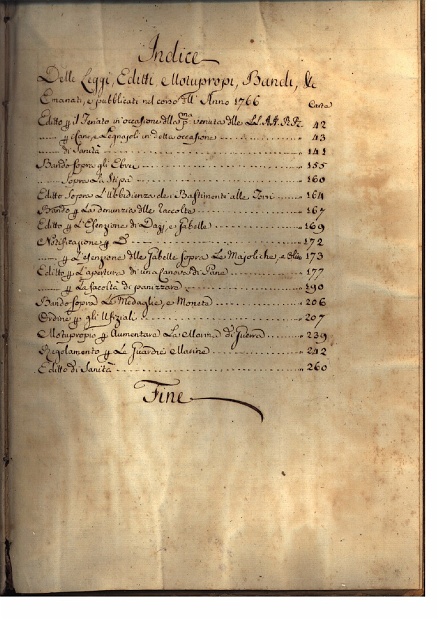 Indice
Delle Leggi, Editti, Motupropi, Bandi, &c
Emanati, e pubblicati nel corso dell' Anno 1766
Carta
Editto p il Senato in occasione della pma venuta delle LL. AA. RR. 42
p Cani, e Legnajoli in detta occasione 43
di Sanità 141
Bando sopra gli Ebrei 155
Sopra La Stipa 160
Editto Sopra L'Ubbidienza dei Bastimenti alle Torri 164
Bando p La denunzia delle Raccolte 167
Editto p L'Esenzione di Dazj, e Gabelle 169
Notificazione p D 172
p L'esenzione delle Gabelle sopra Le Majoliche, e 173
Editto p L'apertura di una Canova di Pane 177
p La facoltà di panizzare 190
Bando sopra Le Medaglie, e Monete 206
Ordine p gli Ufizial 207
Motuproprio p Aumentare La Marina di Guerra 239
Regolamento p Le Guardie Marine 242
Editto di Sanità 260
Fine